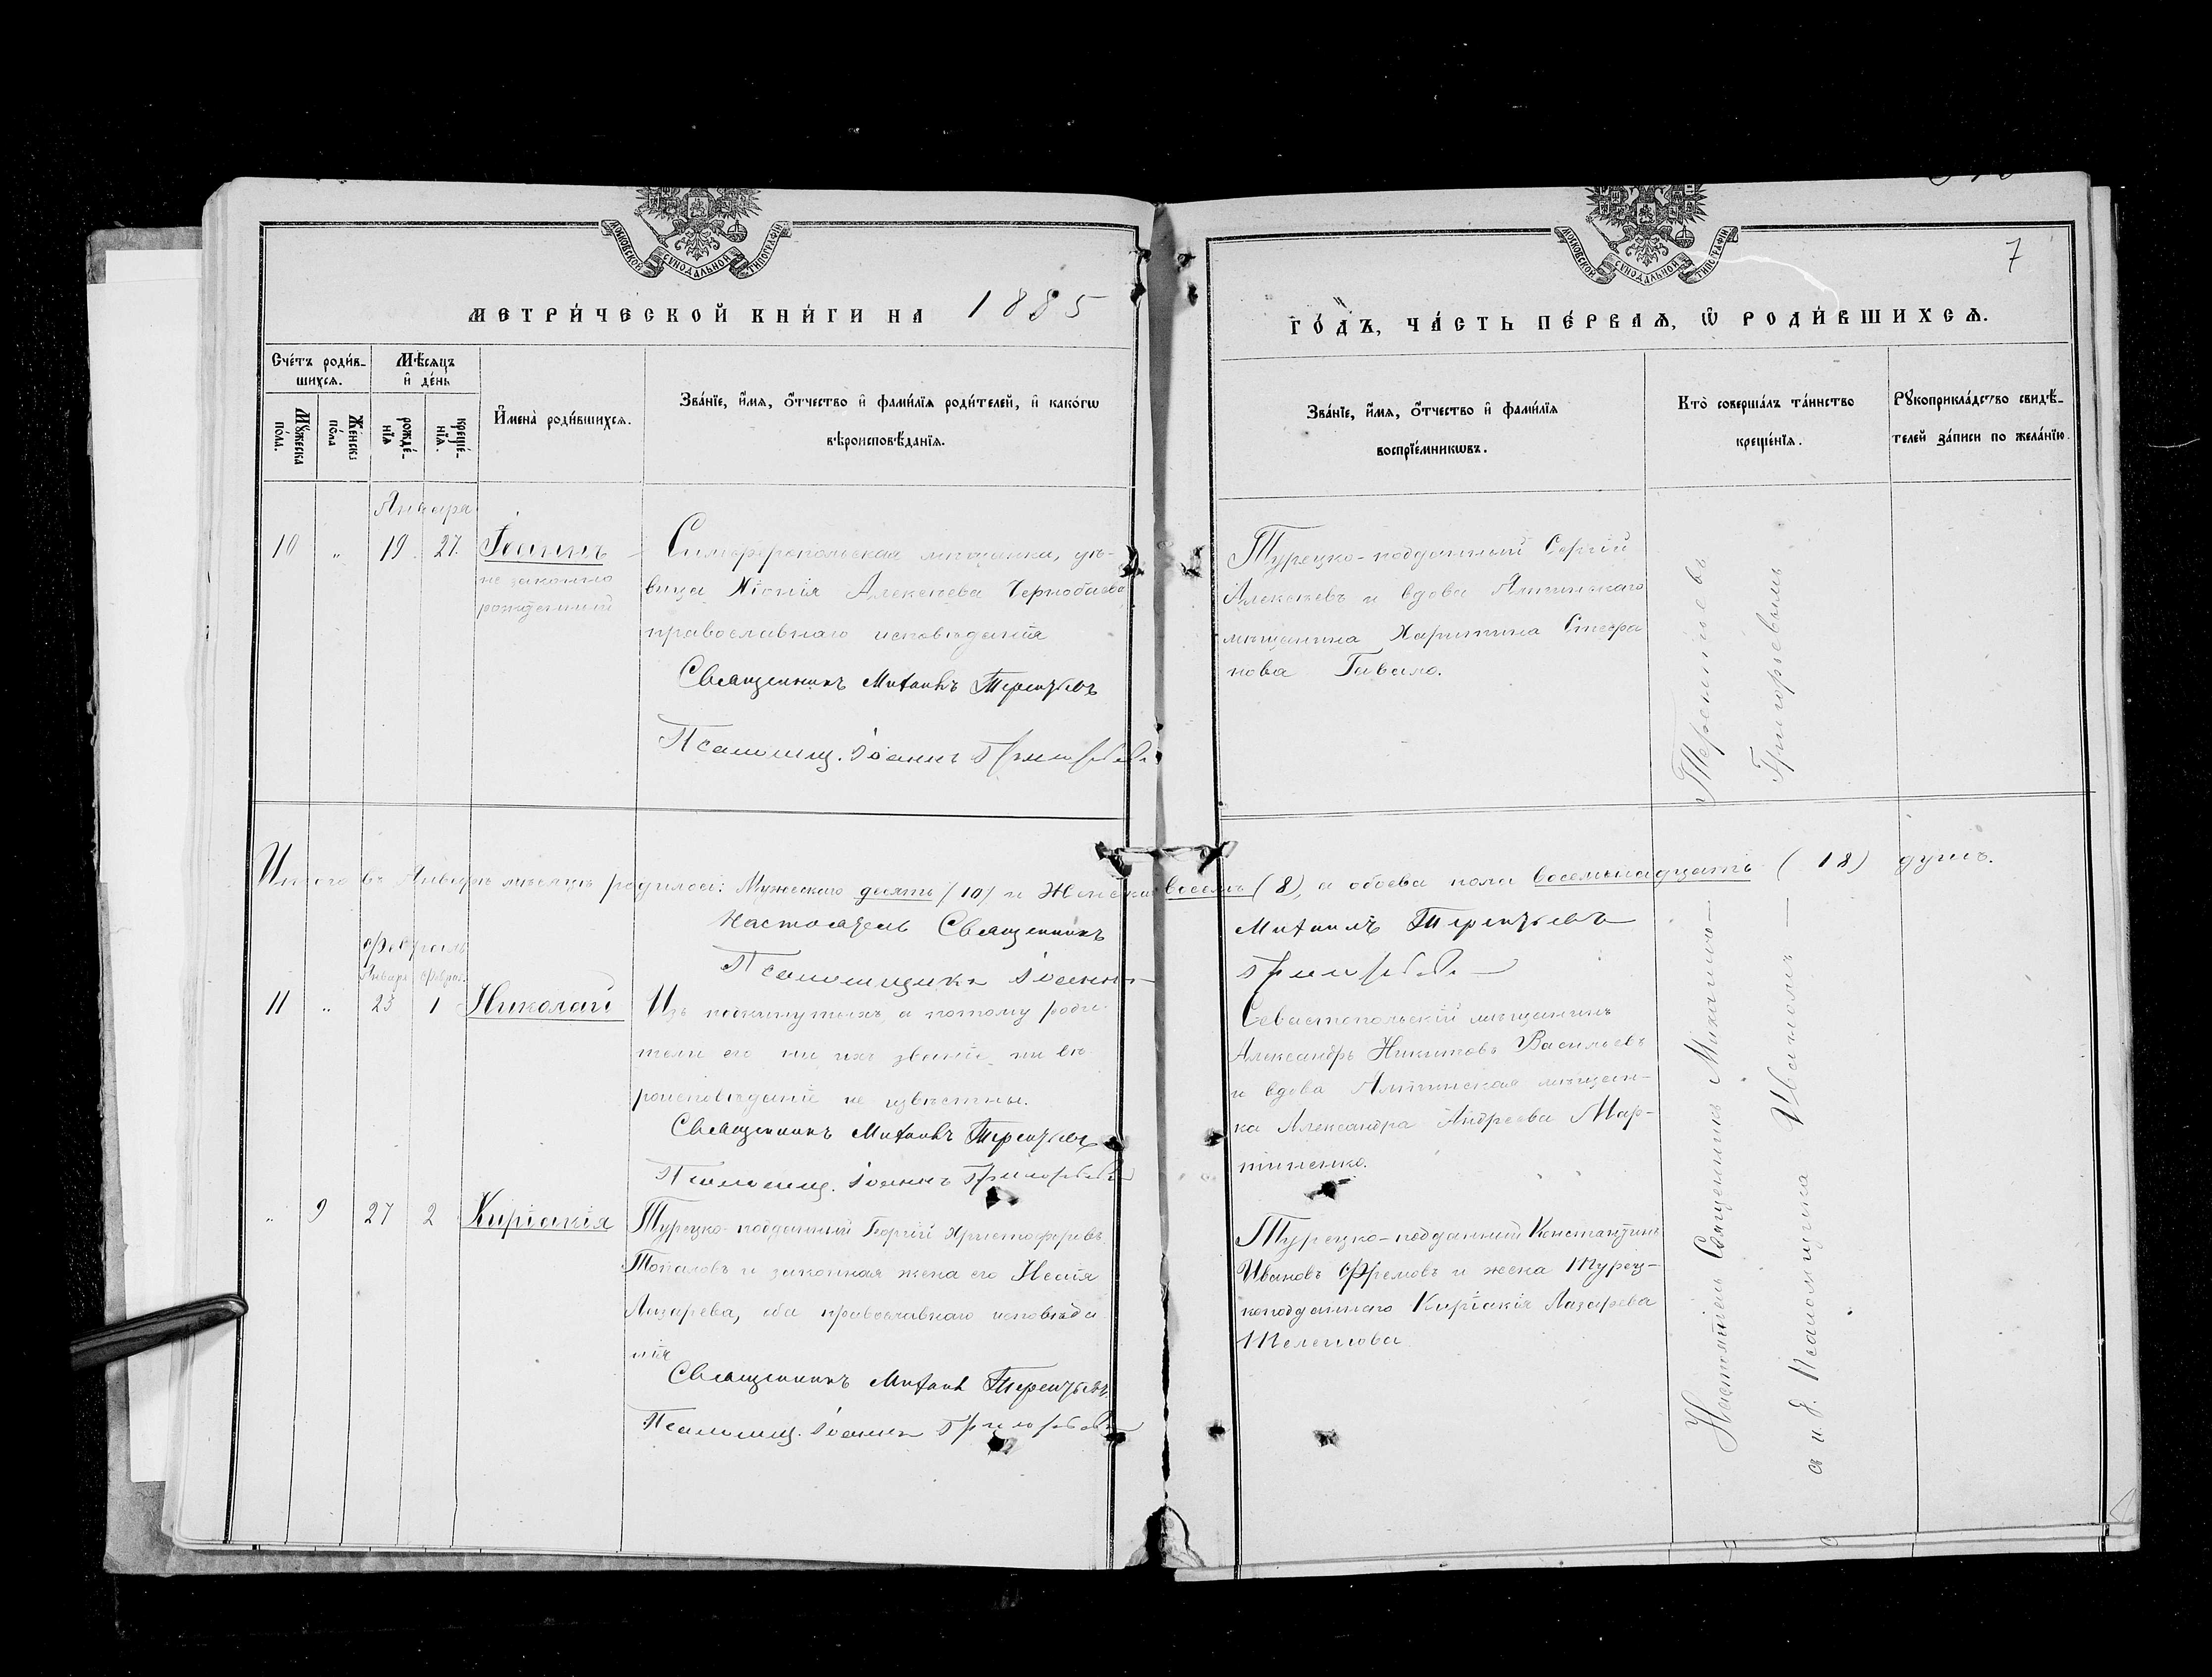 МОСКОВСКОЙ СѴНОДАЛЬНОЙ ТИПОГРАФІИ
МЕТРИ́ЧЕСКОЙ КНИ́ГИ НА 1885
Сче́тъ роди́в-
шихсѧ.
Мѣ́сѧцъ
и҆ де́нь
Мꙋ́жеска
по́ла.
Же́нска
по́ла
рожде́-
нїѧ
креще́-
нїѧ.
И҆мена̀ роди́вшихсѧ.
Зва́нїе, и҆́мѧ, о҆́тчество и҆ фами́лїѧ роди́телей, и҆ како́гѡ
вѣроисповѣ́данїѧ.
Января
10 „ 19 27. Іоаннъ
не законно
рожденный
Симферопольская мѣщанка, дѣ-
вица Ксенія Алексѣева Чернобаева
православнаго исповѣданія
Священникъ Михаилъ Терентьевъ
Псаломщ. Іоаннъ Григорьевъ
Итого въ Январѣ мѣсяцѣ родилось: Мужескаго десять /10/ и Женска восемь (8), а обоева пола восемьнадцать (18) душъ.
Настоятель Священникъ Михаилъ Терентьевъ
Псаломщикъ Іоаннъ Григорьевъ
Февраль
Январь Феврал.
11 „ 23 1 Николай
Изъ подкинутыхъ, а потому роди-
тели его ни ихъ званіе, ни вѣ-
роисповѣданіе не извѣстны.
Священникъ Михаилъ Терентьевъ
Псаломщ. Іоаннъ Григорьевъ
„ 9 27 2 Киріакія
Турецко-подданный Георгій Христофоровъ
Топаловъ и законная жена его
Лазарева, оба православнаго исповѣда
нія
Священникъ Михаилъ Терентьевъ
Псаломщ. Іоаннъ Григорьевъ
7
МОСКОВСКОЙ СѴНОДАЛЬНОЙ ТИПОГРАФІИ
ГО́ДЪ, ЧА́СТЬ ПЕ́РВАѦ, Ѡ҆ РОДИ́ВШИХСѦ.
Зва́нїе, и҆́мѧ, о҆́тчество и҆ фами́лїѧ
воспрїе́мникѡвъ.
Кто̀ соверша́лъ та́инство
креще́нїѧ.
Рꙋкоприкла́дство свидѣ́-
телей за́писи по жела́нїю.
Турецко-подданный Сергій
Алексѣевъ и вдова Ялтинскаго
мѣщанина Харитина Стефа
нова Гавало.
Терентіевъ
Григорьевымъ
Севастопольскій мѣщанинъ
Александръ Никитовъ Васильевъ
и вдова Ялтинская мѣщан-
ка Александра Андреева Мар-
тиненко.
Турецко-подданный Константинъ
Ивановъ Ефремовъ и жена Турец-
коподданнаго Киріакія Лазарева
Настоятель Священникъ Михаилъ
съ и. д. Псаломщика Иваномъ